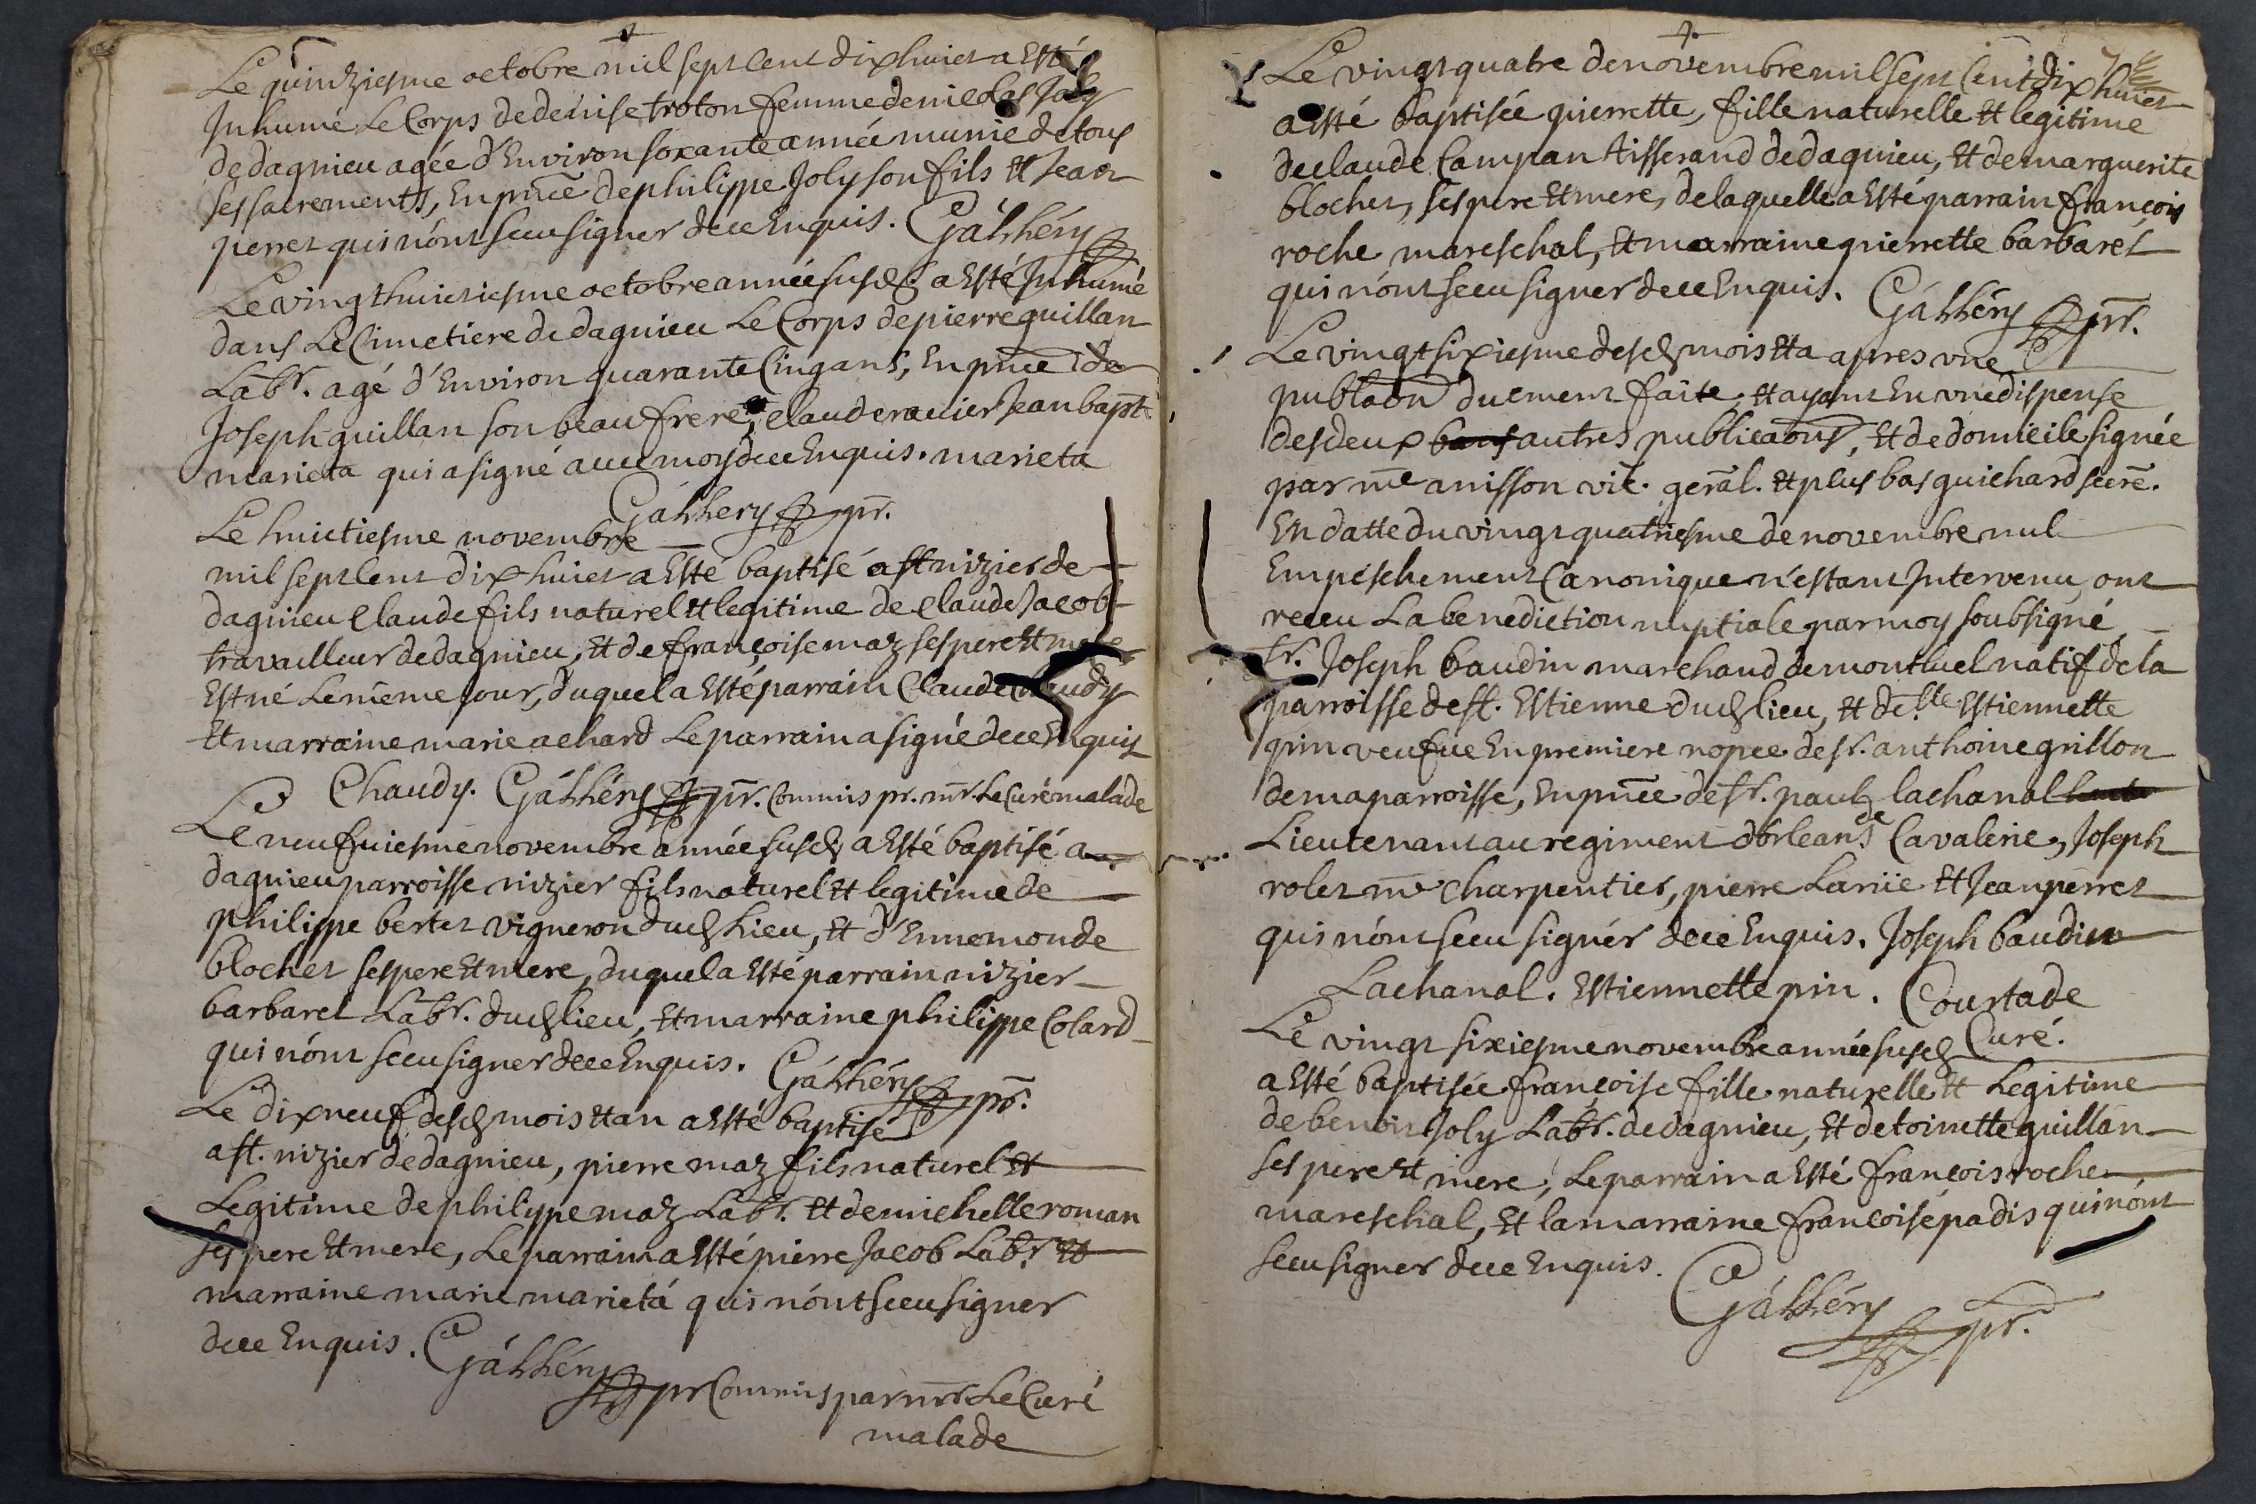 Le quinziesme octobre mil sept cent dix huict a esté
Inhumé Le Corps de denise troton femme de nicolas Joly
de dagnieu agée d'Environ soxante année munie de tous
ses sacrements, En prnce de philippe Joly son fils et Jean
perret qui n'ont sceu signer de ce Enquis. Gáthéry
Le vingt huictiesme octobre année susd. a esté Inhumé
dans Le Cimetiere de dagnieu Le Corps de pierre guillan
Labr. agé d'Environ quarante Cinq ans, En prnce de
Joseph guillan son beau frere, claude ravier Jean bapt.
marieta qui a signé avec moy de ce Enquis. marieta
Gáthery pr.
Le huictiesme novembre
mil sept cent dix huict a esté baptisé a st nizier de
dagnieu claude fils naturel et legitime de claude Jacob
travailleur de dagnieu, et de françoise maz ses pere et mere
est né Le même jour, duquel a esté parrain Claude Chaudy
et marraine marie achard Le parrain a signé de ce Enquis
Chaudy. Gáthéry pr. Commis pr. mr. Le Curé malade
Le neufuiesme novembre année susd. a esté baptisé a
dagnieu parroisse nizier fils naturel et legitime de
philippe bertet vigneron dud. Lieu, et d'Ennemonde
blochet ses pere et mere, duquel a esté parrain nizier
barbaret Labr. dud. lieu, et marraine philippe Colard
qui n'ont sceu signer de ce Enquis. Gáthéry pr.
Le dix neuf desd. mois et an a esté baptisé
a st. nizier de dagnieu, pierre maz fils naturel et
Legitime de philippe maz Labr. et de michelle roman
ses pere et mere, Le parrain a esté pierre Jacob Labr. et
marraine marie marietá qui n'ont sceu signer
de ce Enquis. Gáthéry
pr Commis par mr Le Curé
malade
Le vingt quatre de novembre mil sept Cent dix huict
a esté baptisée pierrette, fille naturelle et legitime
de claude Campan tisserand de dagnieu, et de marguerite
blochet, ses pere et mere, de laquelle a esté parrain françois
roche mareschal, et marraine pierrette barbaret
qui n'ont sceu signer de ce Enquis. Gáthéry pr.
Le vingt sixiesme desd. mois et a apres une
publaõn duement faite, et ayant Eu une dispense
des deux bans autres publicaõns, et de domicile signée
par me anisson vic. genãl. et plus bas guichard secre.
En datte du vingt quatriesme de novembre nul
Empeschement Canonique n'estant Intervenu, ont
receu La benediction nuptiale par moy soubsigné
sr. Joseph baudin marchand de montluel natif de la
parroisse de st. Estienne dud. lieu, et de.lle Estiennette
pin veufue En premiere nopce de sr. anthoine grillon
de ma parroisse, En prnce de sr. paul lachanal
Lieutenant au regiment d'orleans de Cavalerie, Joseph
rolet me charpentier, pierre Lariie et Jean perret
qui n'ont sceu signér de ce Enquis. Joseph baudin
Lachanal. Estiennette pin. Courtade
Curé.
Le vingt sixiesme novembre année susd.
a esté baptisée francoise fille naturelle et Legitime
de benoit Joly Labr. de dagnieu, et de toinette guillan
ses pere et mere, Le parrain a esté francois roche
mareschal, et la marraine françoise padis qui n'ont
sceu signer de ce Enquis.
Gáthéry
pr.